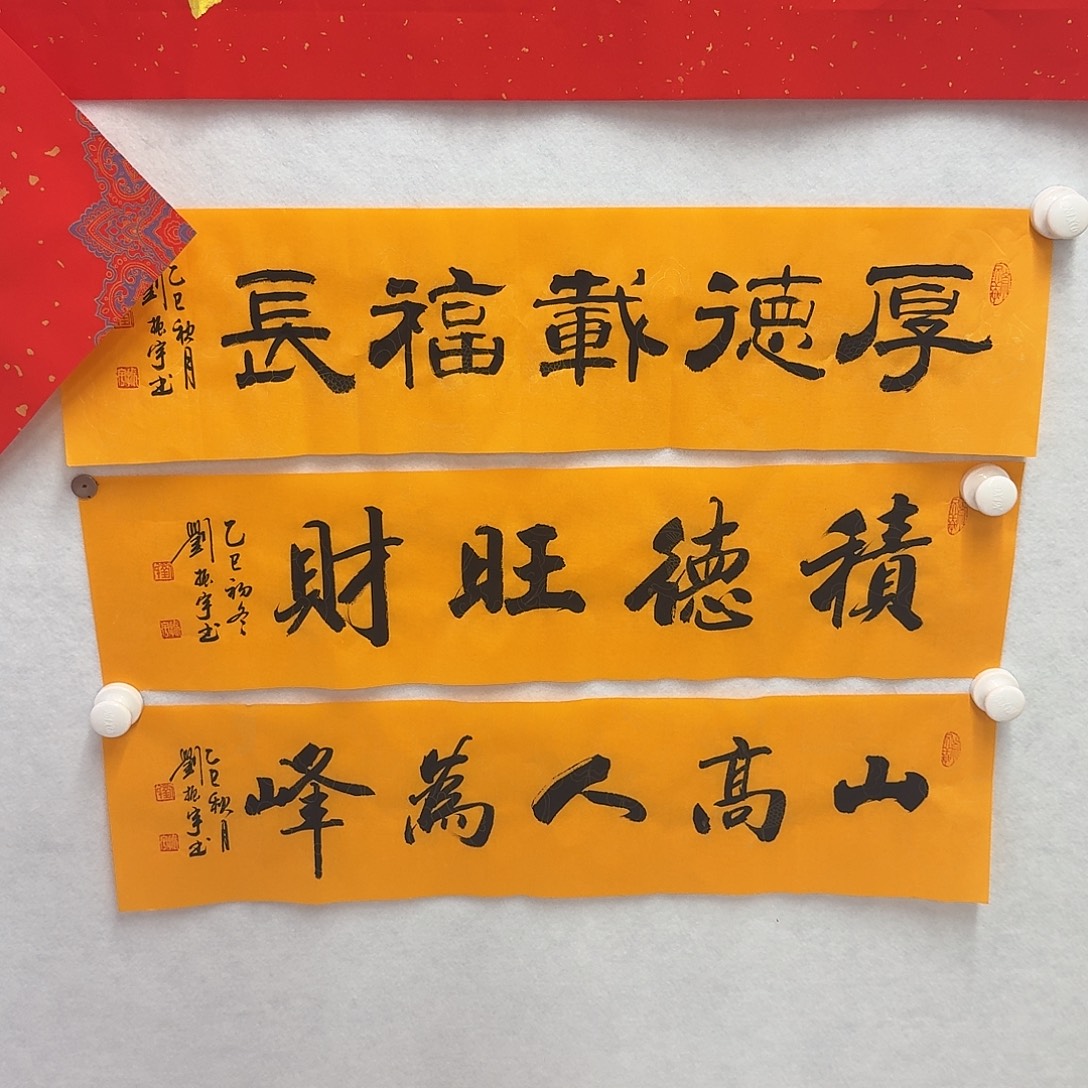 厚德載福長
乙巳秋月
劉振宇书
積德旺財
乙巳初冬
劉振宇书
山高人為峰
乙巳秋月
劉振宇书